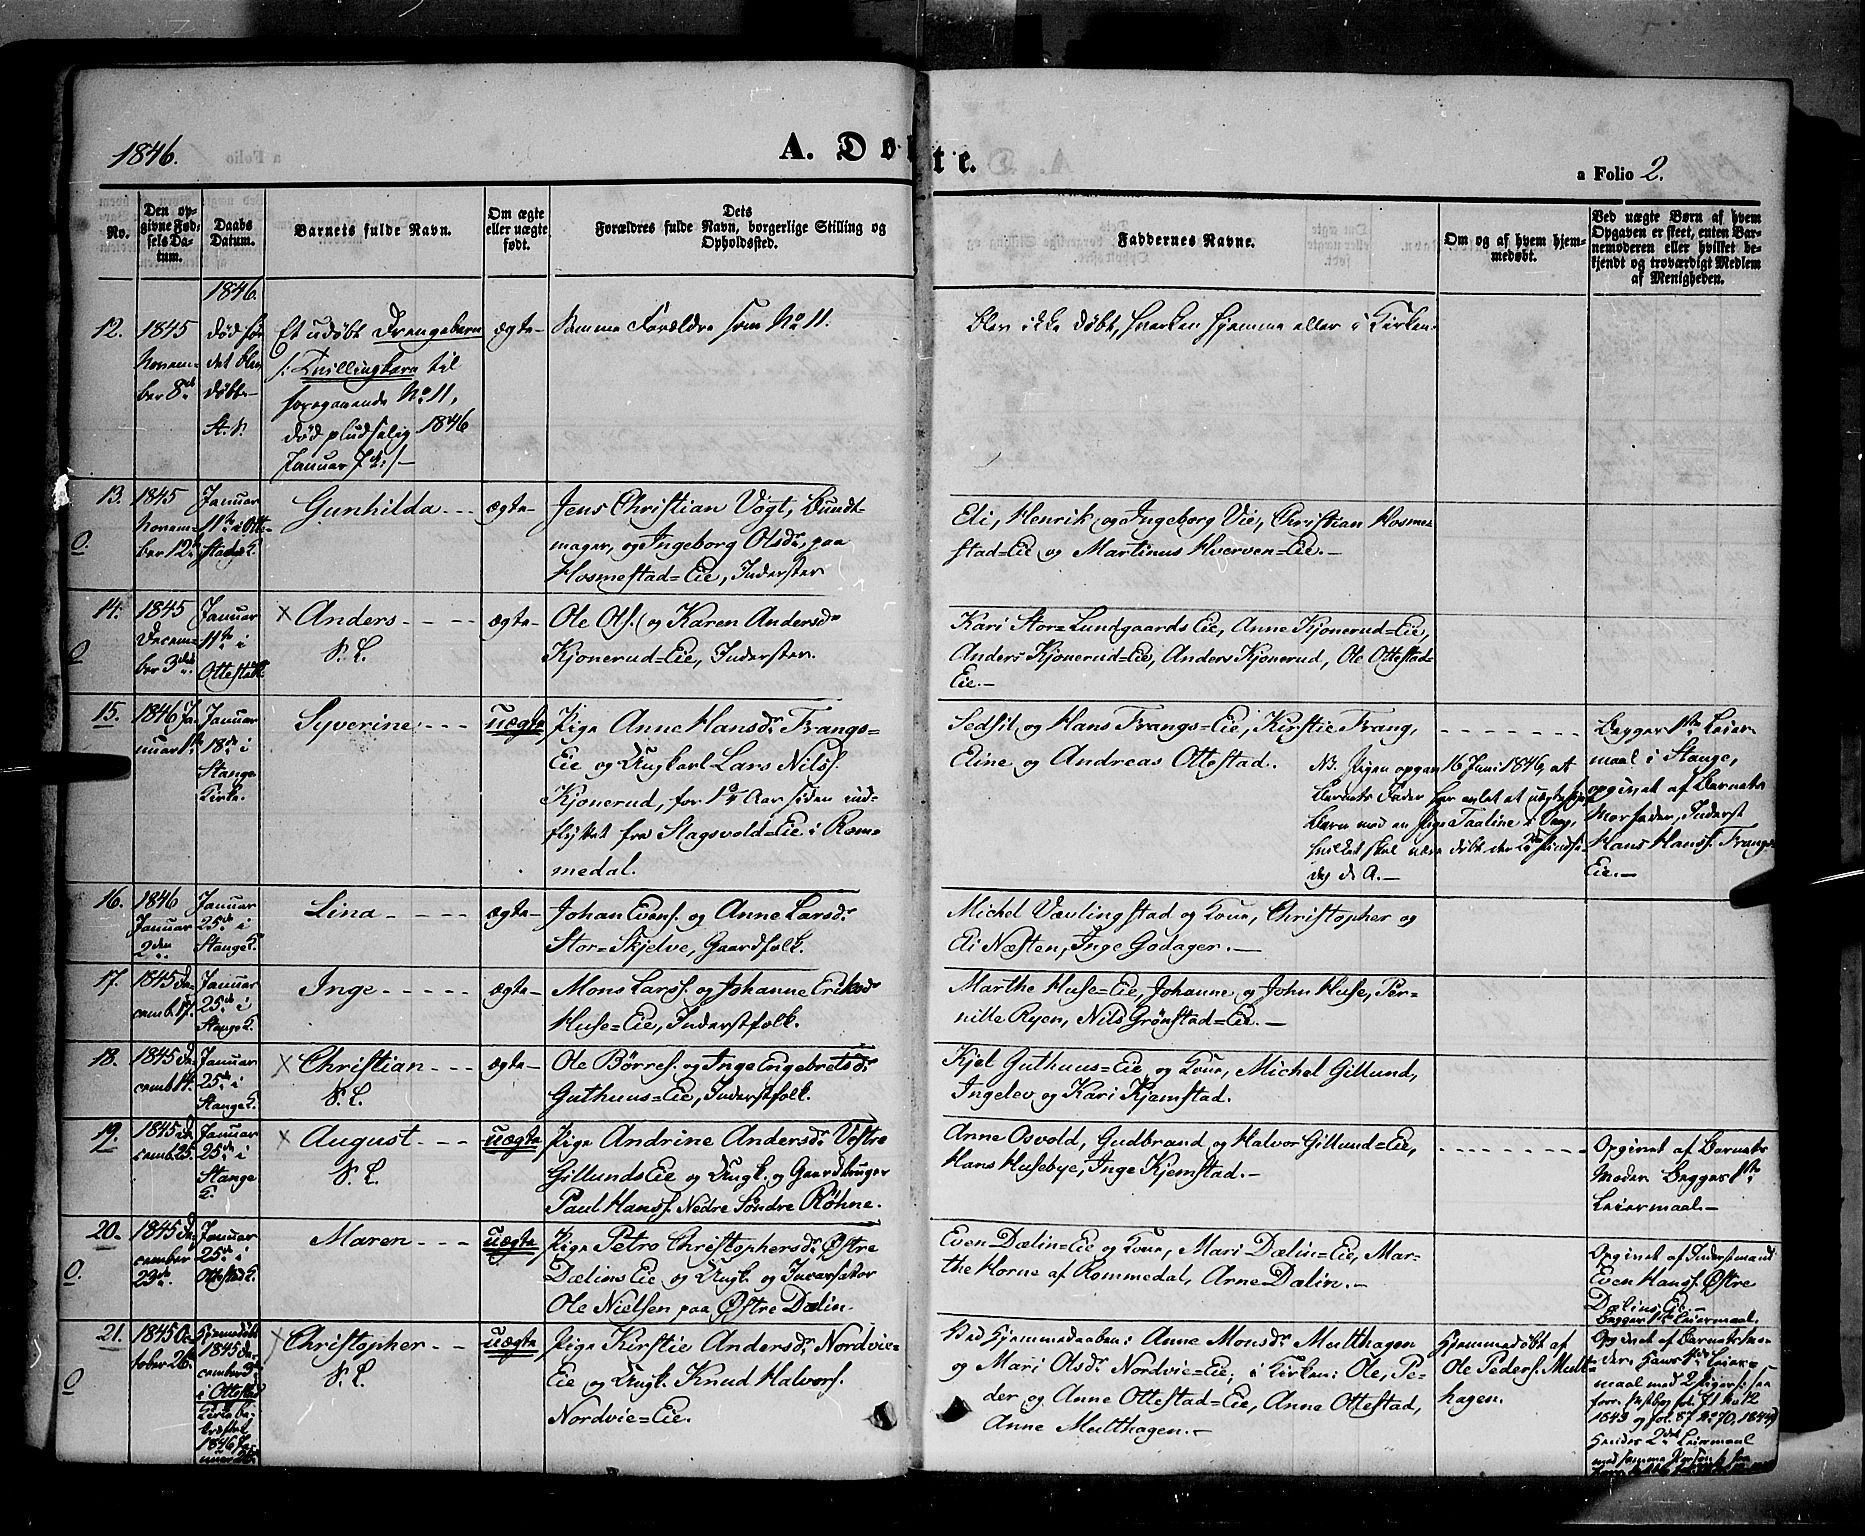 1846.
A. Døbte.
a Folio 2.
No.
Den op-
givne Fød-
sels Da-
tum.
Daabs
Datum.
Barnets fulde Navn.
Om ægte
eller uægte
født.
Dets
Forældres fulde Navn, borgerlige Stilling og
Opholdssted.
Faddernes Navne.
Om og af hvem hjem-
medøbt.
Ved uægte Børn af hvem
Opgaven er skeet, enten Bar-
nemoderen eller hvilket be-
kjendt og troværdigt Medlem
af Menigheden.
1846.
12.
1845
Novem-
ber 8de
død før
det blev
døbt
St. P.
Et udøbt Drengebarn
/: Tvillingbarn til
foregaaende No 11,
død pludselig 1846
Januar :/
ægte
Samme Forældre som No 11.
Blev ikke døbt, hverken hjemme eller i Kirken.
13.
O.
1845
Novem-
ber 12te
Januar
11te i Otte-
stads K.
Gunhilda
ægte
Jens Christian Vogt, Bundt-
mager, og Ingeborg Olsdr. paa
Hosmestad=Eie, Inderster
Eli, Henrik og Ingeborg Vie, Christian Hosme-
stad=Eie og Martinus Hverven=Eie.
14.
O
1845
Decem-
ber 3die
Januar
11te i
Ottestad
× Anders
S. L.
ægte
Ole Ols. og Karen Andersdr.
Kjonerud=Eie, Inderster.
Kari Stor=Lundgaards Eie, Anne Kjonerud=Eie,
Anders Kjonerud=Eie, Anders Kjonerud, Ole Ottestad=
Eie.
15.
1846 Ja-
nuar 1ste
Januar
18de i
Stange
Kirke.
Syverine
uægte
Pige Anne Hansdr. Frangs=
Eie og Ungkarl Lars Nilss.
Kjonerud, for 1 Aar siden ind-
flyttet fra Slagsvold=Eie i Rom-
medal.
Sedsil og Hans Frangs=Eie, Kirstie Frang,
Eline og Andreas Ottestad.
NB. Pigen opgav 16 Juni 1846, at
Barnets Fader har avlet et uægte
Barn med en Pige Taaline i Vang,
hvilket skal være døbt den 2den Pindse-
dag d. A.
Begges 1ste Leier-
maal i Stange,
opgivet af Barnets
Morfader, Inderst
Hans Hanss. Frangs
Eie.
16.
1846
Januar
2den
Januar
25de i
Stange K.
Lina
ægte
Johan Evens. og Anne Larsdr.
Stor=Skjelve, Gaardfolk.
Michel Vævlingstad og Kone, Christopher og
Eli Næsten, Inge Godager.
17.
1845 De-
cemb. 17.
Januar
25de i
Stange K.
Inge
ægte
Mons Larss. og Johanne Eriksdr.
Huse=Eie, Inderstfolk.
Marthe Huse=Eie, Johanne og John Huse, Per-
nille Ryen, Nils Grønstad=Eie.
18.
1845 De-
cemb. 14.
Januar
25de i
Stange K.
× Christian
S. L.
ægte
Ole Børres. og Inge Engebretsdr.
Guthuus=Eie, Inderstfolk.
Kjel Guthuus=Eie og Kone, Michel Gillund,
Ingelev og Kari Kjemstad.
19.
1845 De-
cemb. 25.
Januar
25de i
Stange
K.
× August
S. L.
uægte
Pige Andrine Andersdr. Vestre
Gillunds Eie og Ungk. og Gaardbruger
Paul Hanss. Nedre Søndre Røhne.
Anne Osvold, Gudbrand og Halvor Gillund=Eie,
Hans Husebye, Inge Kjemstad.
Opgivet af Barnets
Moder. Begges 1ste
Leiermaal.
20.
O.
1845 De-
cember
23de
Januar
25de i
Ottestad K.
Maren
uægte
Pige Petro Christophersdr. Østre
Dælins Eie og Ungk. og
Ole Nielsen paa Østre Dælin.
Even Dælin=Eie og Kone, Mari Dælin=Eie, Mar-
the Horne af Rommedal, Arne Dælin.
Opgivet af Inderstmand
Even Hanss. Østre
Dælins Eie.
Begges 1ste Leiermaal.
21.
O
1845 Oc-
tober 26de
Hjemmedøbt
1845 De-
cember
i Ottestad
Kirke be-
kræftet
1846 Ja-
nuar
× Christopher
S. L.
uægte
Pige Kirstie Andersdr. Nordvie=
Eie og Ungk. Knud Halvors.
Nordvie=Eie.
Ved Hjemmedaaben: Anne Monsdr. Multhagen
og Mari Olsdr. Nordvie=Eie; i Kirken: Ole, Pe-
der og Anne Ottestad=Eie, Anne Ottestad,
Anne Multhagen.
Hjemmedøbt af
Ole Peders. Mult-
hagen.
Opgivet af Barnets Mo-
der. Hans Leier-
maal med 2 Piger:
1843 og fol. 87 No 70, 1844
Hendes 2det Leiermaal
med samme Person